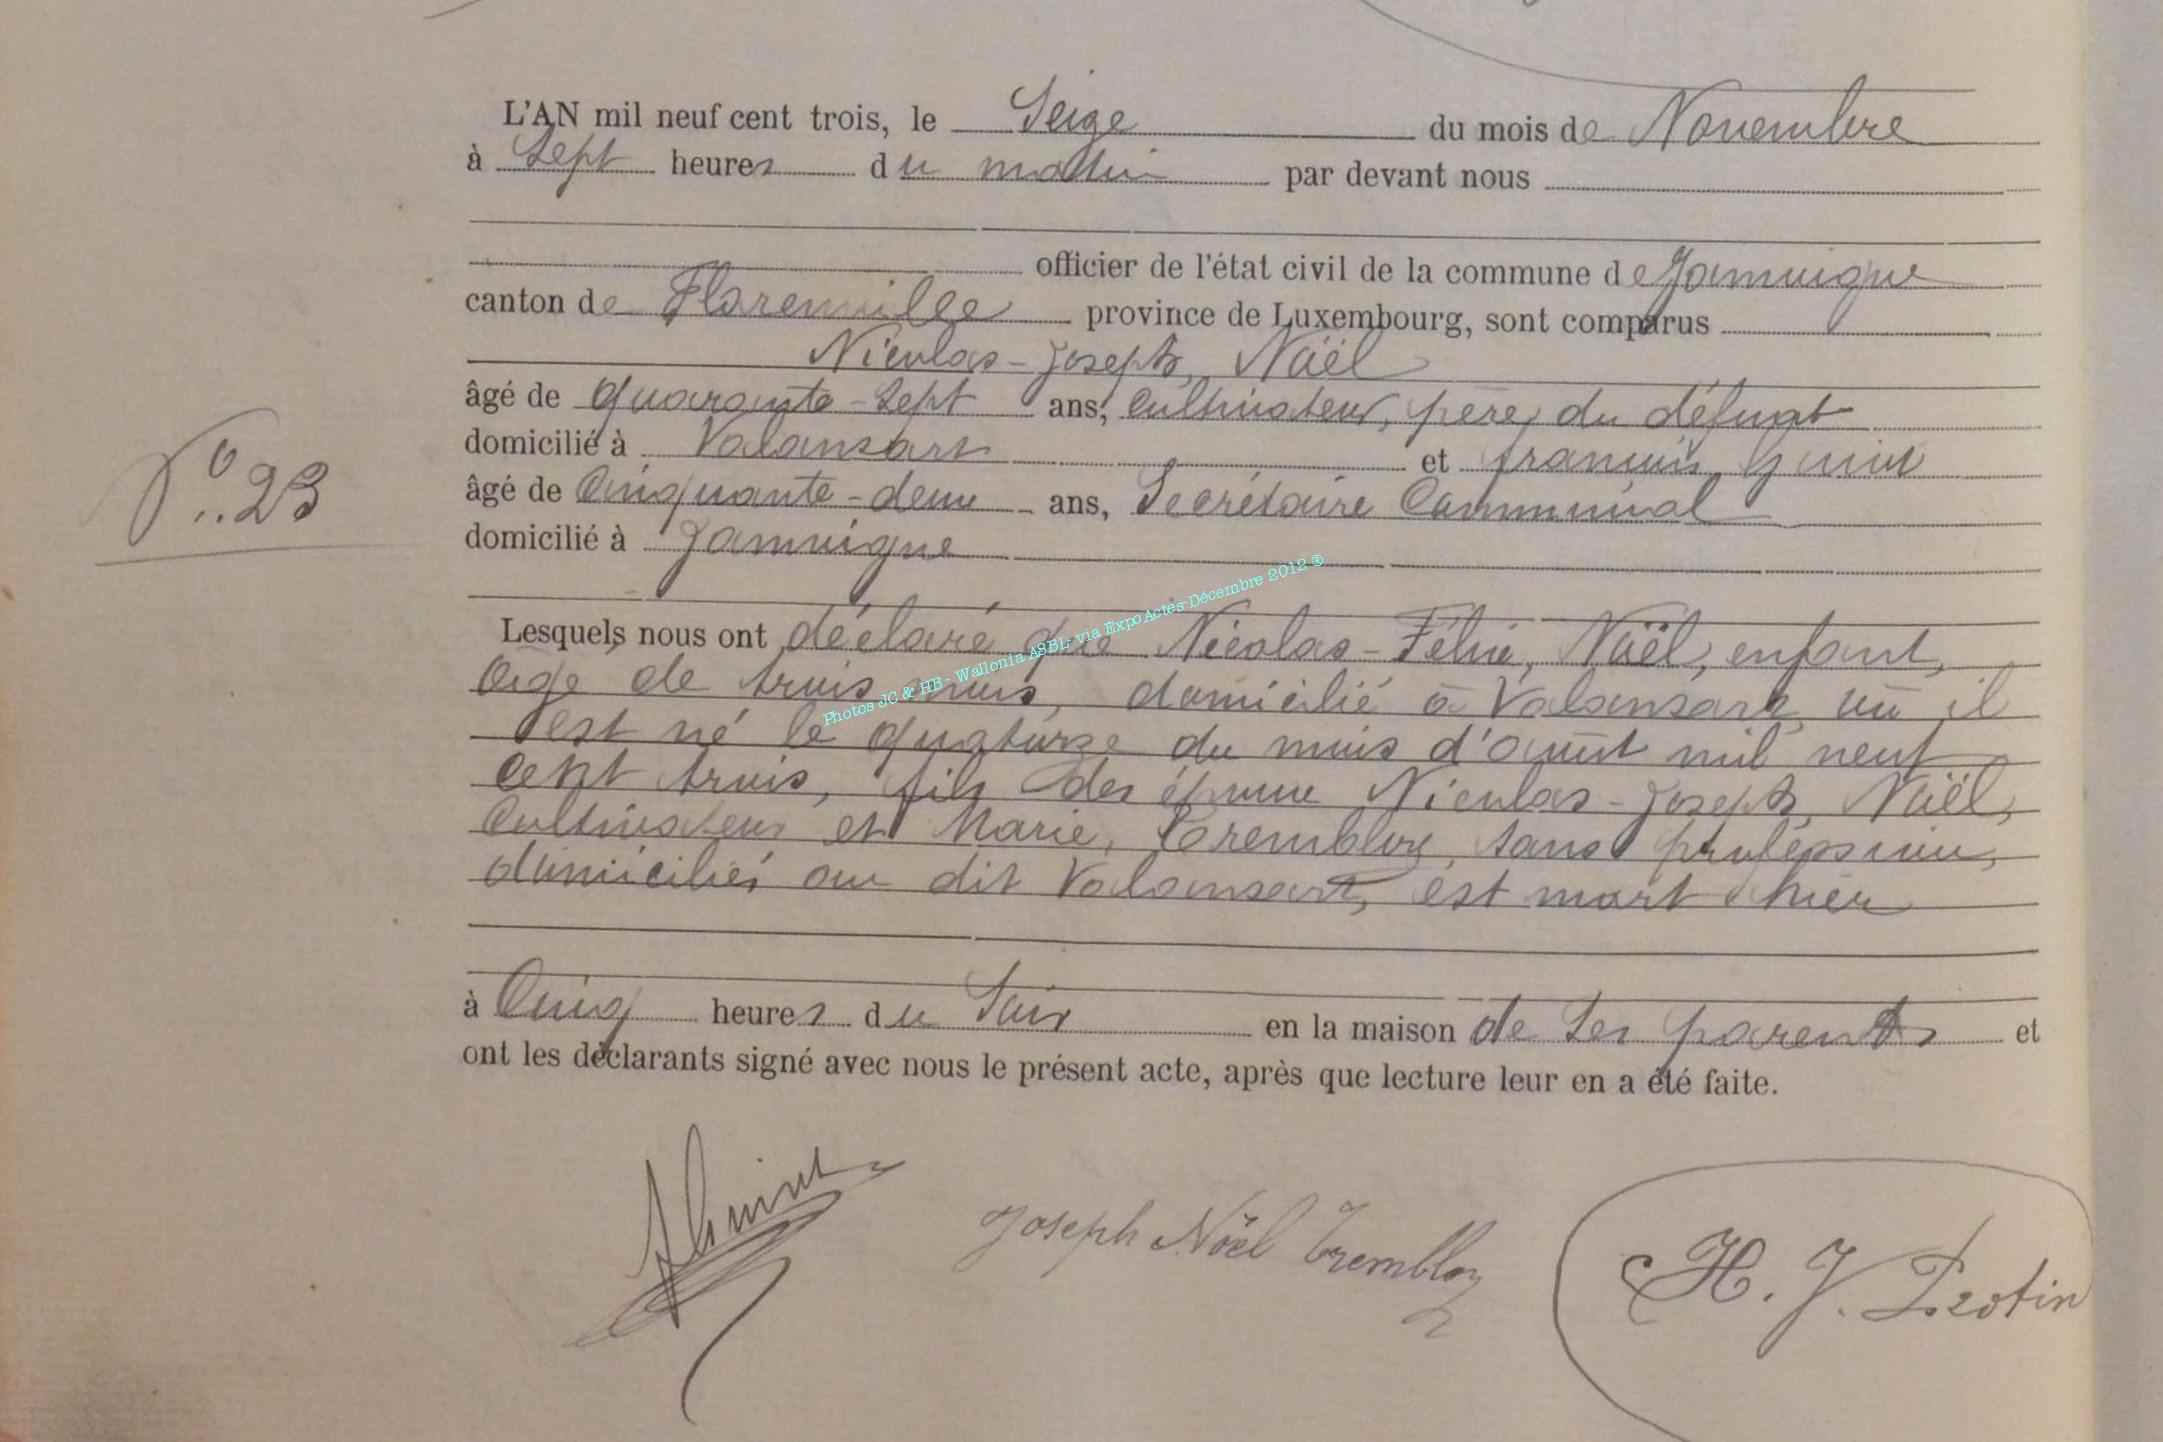 L'AN mil neuf cent trois, le Seize du mois de Novembre
à Sept heures du matin par devant nous
officier de l'état civil de la commune de Jamoigne
canton de Florenville province de Luxembourg, sont comparus
Nicolas-Joseph, Noël
âgé de quarante-sept ans, cultivateur, père du défunt
domicilié à Valansart et françois,
N° 23
âgé de Cinquante-deux ans, Secrétaire Communal
domicilié à Jamoigne
Photos JG & HB - Wallonia ASBL- via ExpoActes Décembre 2012 ®
Lesquels nous ont déclaré que Nicolas-Félix, Noël, enfant,
âgé de trois mois, domicilié à Valansart, où il
est né le quatorze du mois d'août mil neuf
cent trois, fils des époux Nicolas-Joseph, Noël,
Cultivateur et Marie, Trembloy, sans profession,
domiciliés au dit Valansart, est mort hier
à Cinq heures du Soir en la maison de ses parents et
ont les déclarants signé avec nous le présent acte, après que lecture leur en a été faite.
Joseph Noël Trembloy
H. J. Protin